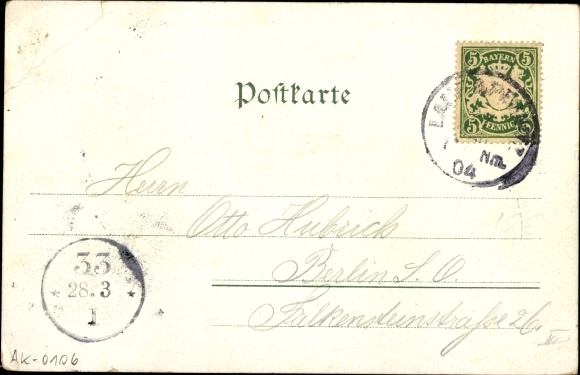 Postkarte
5 BAYERN 5
5 PFENNIG 5
Nm.
04
Herrn
Otto Hubrich
Berlin S. O.
Falkensteinstraße 26
III
33
* 28. 3 *
1
AK-0106